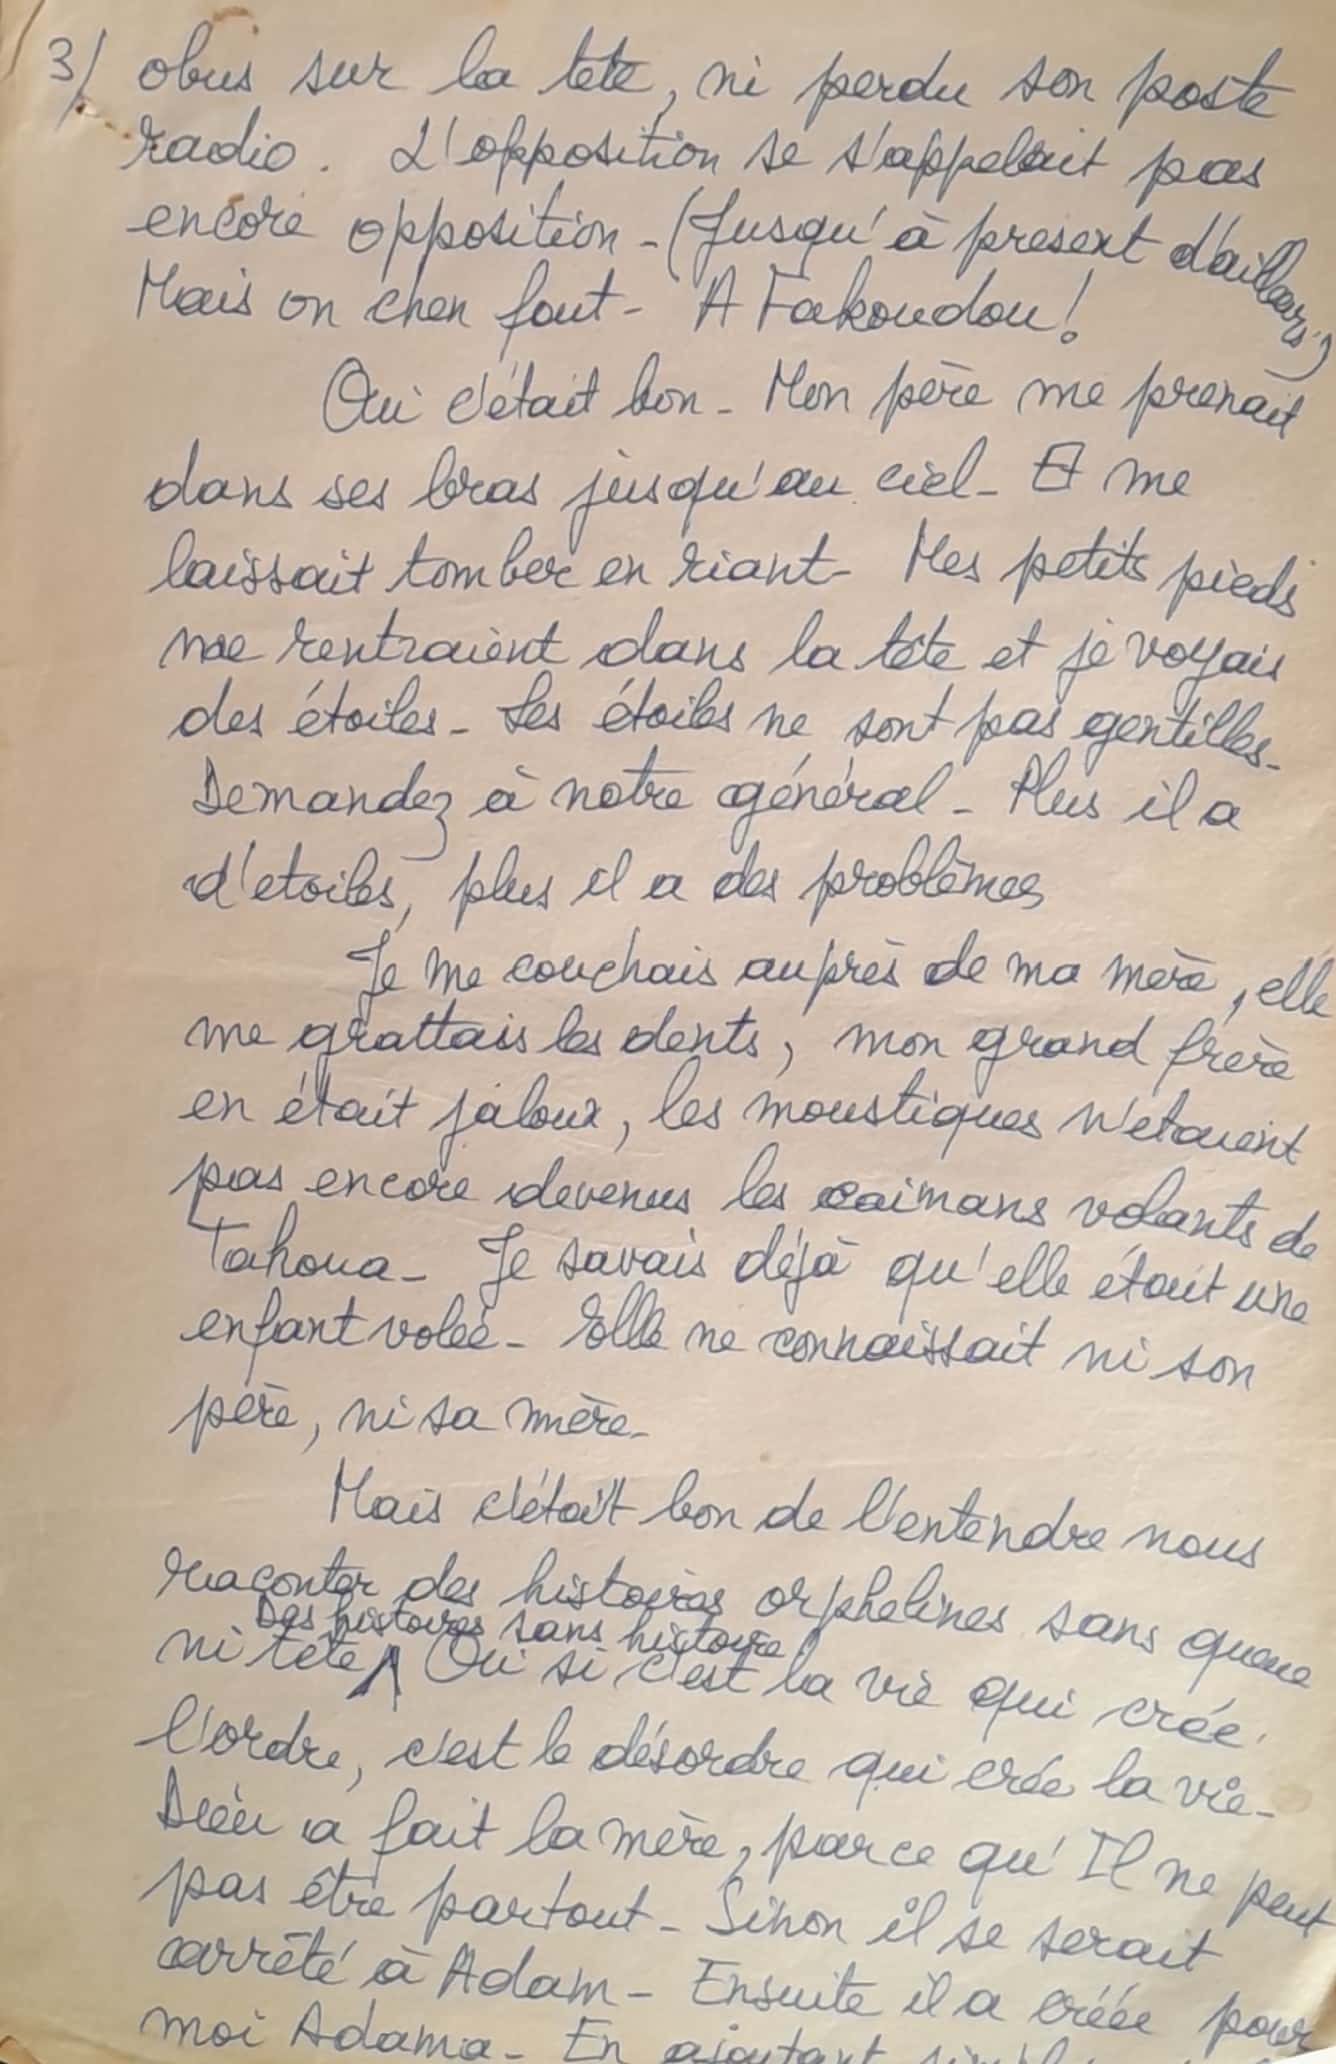 3/ obus sur la tête, ni perdu son poste
radio. L'opposition se s'appelait pas
encore opposition - (Jusqu'à present d'ailleurs)
Mais on chen fout - A Fakoudou!
Oui c'était bon - Mon père me prenait
dans ses bras jusqu'au ciel - Et me
laissait tomber en riant - Mes petits pieds
me rentraient dans la tête et je voyais
des étoiles - Les étoiles ne sont pas gentilles -
Demandez à notre général - Plus il a
d'etoiles, plus il a des problèmes
Je me couchais auprès de ma mère, elle
me grattais les dents, mon grand frère
en était jaloux, les moustiques n'etaient
pas encore devenus les caimans volants de
Tahoua - Je savais déjà qu'elle était une
enfant volée - Elle ne connaissait ni son
père, ni sa mère -
Mais c'était bon de l'entendre nous
raconter des histoires orphelines sans queue
Des histoires sans histoire
ni tête Oui si c'est la vie qui crée
l'ordre, c'est le désordre qui crée la vie -
Dieu a fait la mère, parce qu'Il ne peut
pas être partout - Sinon il se serait
arrêté à Adam - Ensuite il a créée pour
moi Adama - En ajoutant